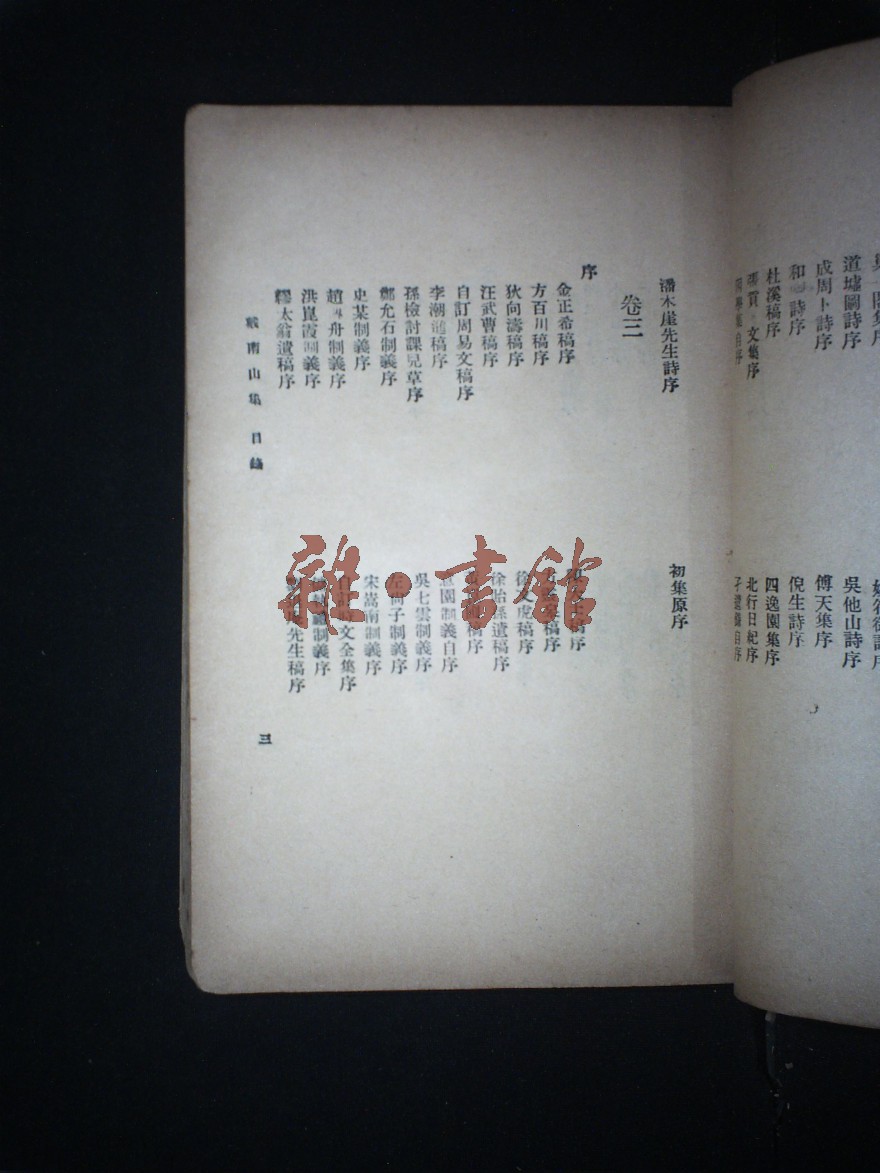 道墟圖詩序
吳他山詩序
成周卜詩序
傅天集序
詩序
倪生詩序
杜溪稿序
四逸園集序
文集序
北行日紀序
自序
自序
潘木崖先生詩序
初集原序
卷三
序
金正希稿序
稿序
方百川稿序
稿序
狄向濤稿序
徐文虎稿序
汪武曹稿序
徐貽孫遺稿序
自訂周易文稿序
稿序
李潮進稿序
意園制義自序
孫檢討課兒草序
吳七雲制義序
鄭允石制義序
左尚子制義序
史某制義序
宋嵩南制義序
趙傅舟制義序
自訂時文全集序
洪崑霞制義序
制義序
繆太翁遺稿序
先生稿序
戴南山集 目錄
三
雜·書館